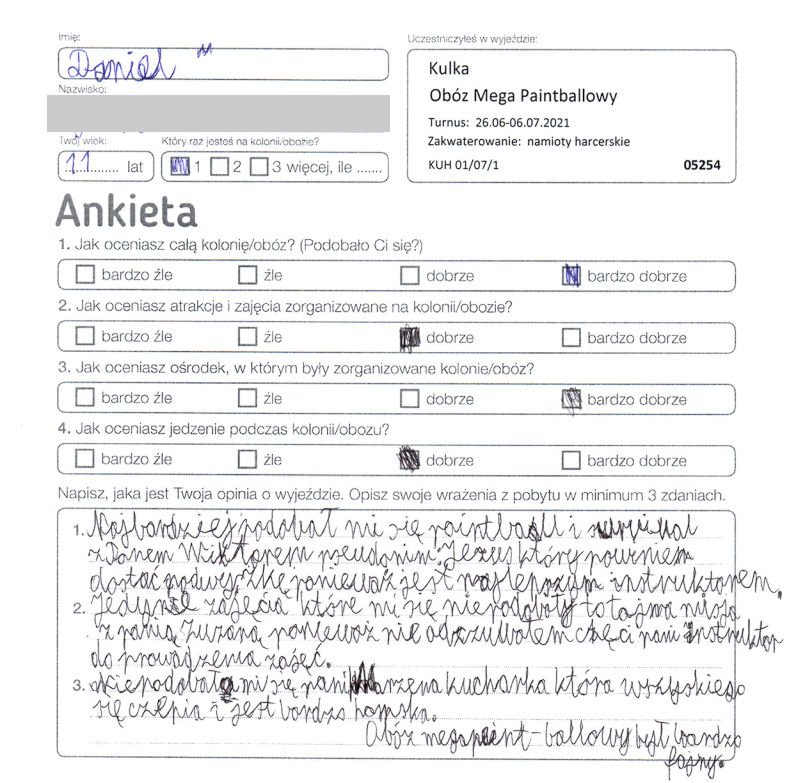 Imię:
Daniel
Nazwisko:
Twój wiek:
11 lat
Który raz jesteś na kolonii/obozie?
1 2 3 więcej, ile .......
Uczestniczyłeś w wyjeździe:
Kulka
Obóz Mega Paintballowy
Turnus: 26.06-06.07.2021
Zakwaterowanie: namioty harcerskie
KUH 01/07/1 05254
Ankieta
1. Jak oceniasz całą kolonię/obóz? (Podobało Ci się?)
bardzo źle źle dobrze bardzo dobrze
2. Jak oceniasz atrakcje i zajęcia zorganizowane na kolonii/obozie?
bardzo źle źle dobrze bardzo dobrze
3. Jak oceniasz ośrodek, w którym były zorganizowane kolonie/obóz?
bardzo źle źle dobrze bardzo dobrze
4. Jak oceniasz jedzenie podczas kolonii/obozu?
bardzo źle źle dobrze bardzo dobrze
Napisz, jaka jest Twoja opinia o wyjeździe. Opisz swoje wrażenia z pobytu w minimum 3 zdaniach.
1. Najbardziej podobał mi się paintball i survival
z Panem Wiktorem pseudonim: Jezus który powinien
dostać podwyżkę ponieważ jest najlepszym instruktorem.
2. Jedyne zajęcia które mi się niepodobały to tajma misja
z panią Zuzaną ponieważ nie odczuwałem chęci pani instruktor
do prowadzenia zajęć.
3. Niepodobała mi się pani Marzena kucharka która wszystkiego
się czepia i jest bardzo
Obóz megapaint-ballowy był bardzo
fajny.